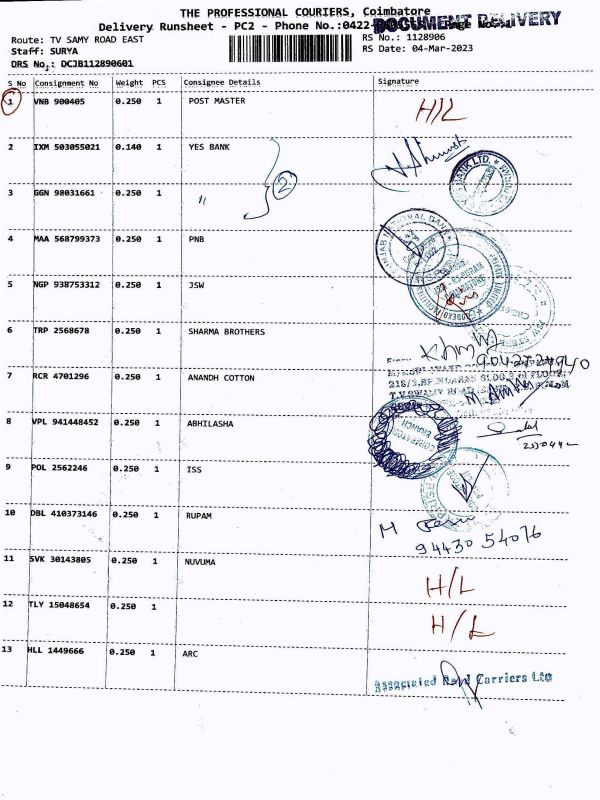 THE PROFESSIONAL COURIERS, Coimbatore
Delivery Runsheet - PC2 - Phone No.:0422-
DOCUMENT DELIVERY
Route: TV SAMY ROAD EAST
RS No.: 1128906
Staff: SURYA
RS Date: 04-Mar-2023
DRS No.: DCJB112890601
S No Consignment No Weight PCS Consignee Details Signature
1 VNB 900405 0.250 1 POST MASTER H/L
2 IXM 503055021 0.140 1 YES BANK
2
3 GGN 98031661 0.250 1 "
4 MAA 568799373 0.250 1 PNB
5 NGP 938753312 0.250 1 JSW
6 TRP 2568678 0.250 1 SHARMA BROTHERS
7 RCR 4701296 0.250 1 ANANDH COTTON
8 VPL 941448452 0.250 1 ABHILASHA
9 POL 2562246 0.250 1 ISS
10 DBL 410373146 0.250 1 RUPAM
94430 54076
11 SVK 30143805 0.250 1 NUVUMA H/L
12 TLY 15048654 0.250 1 H/L
13 HLL 1449666 0.250 1 ARC
Associated Road Carriers Ltd